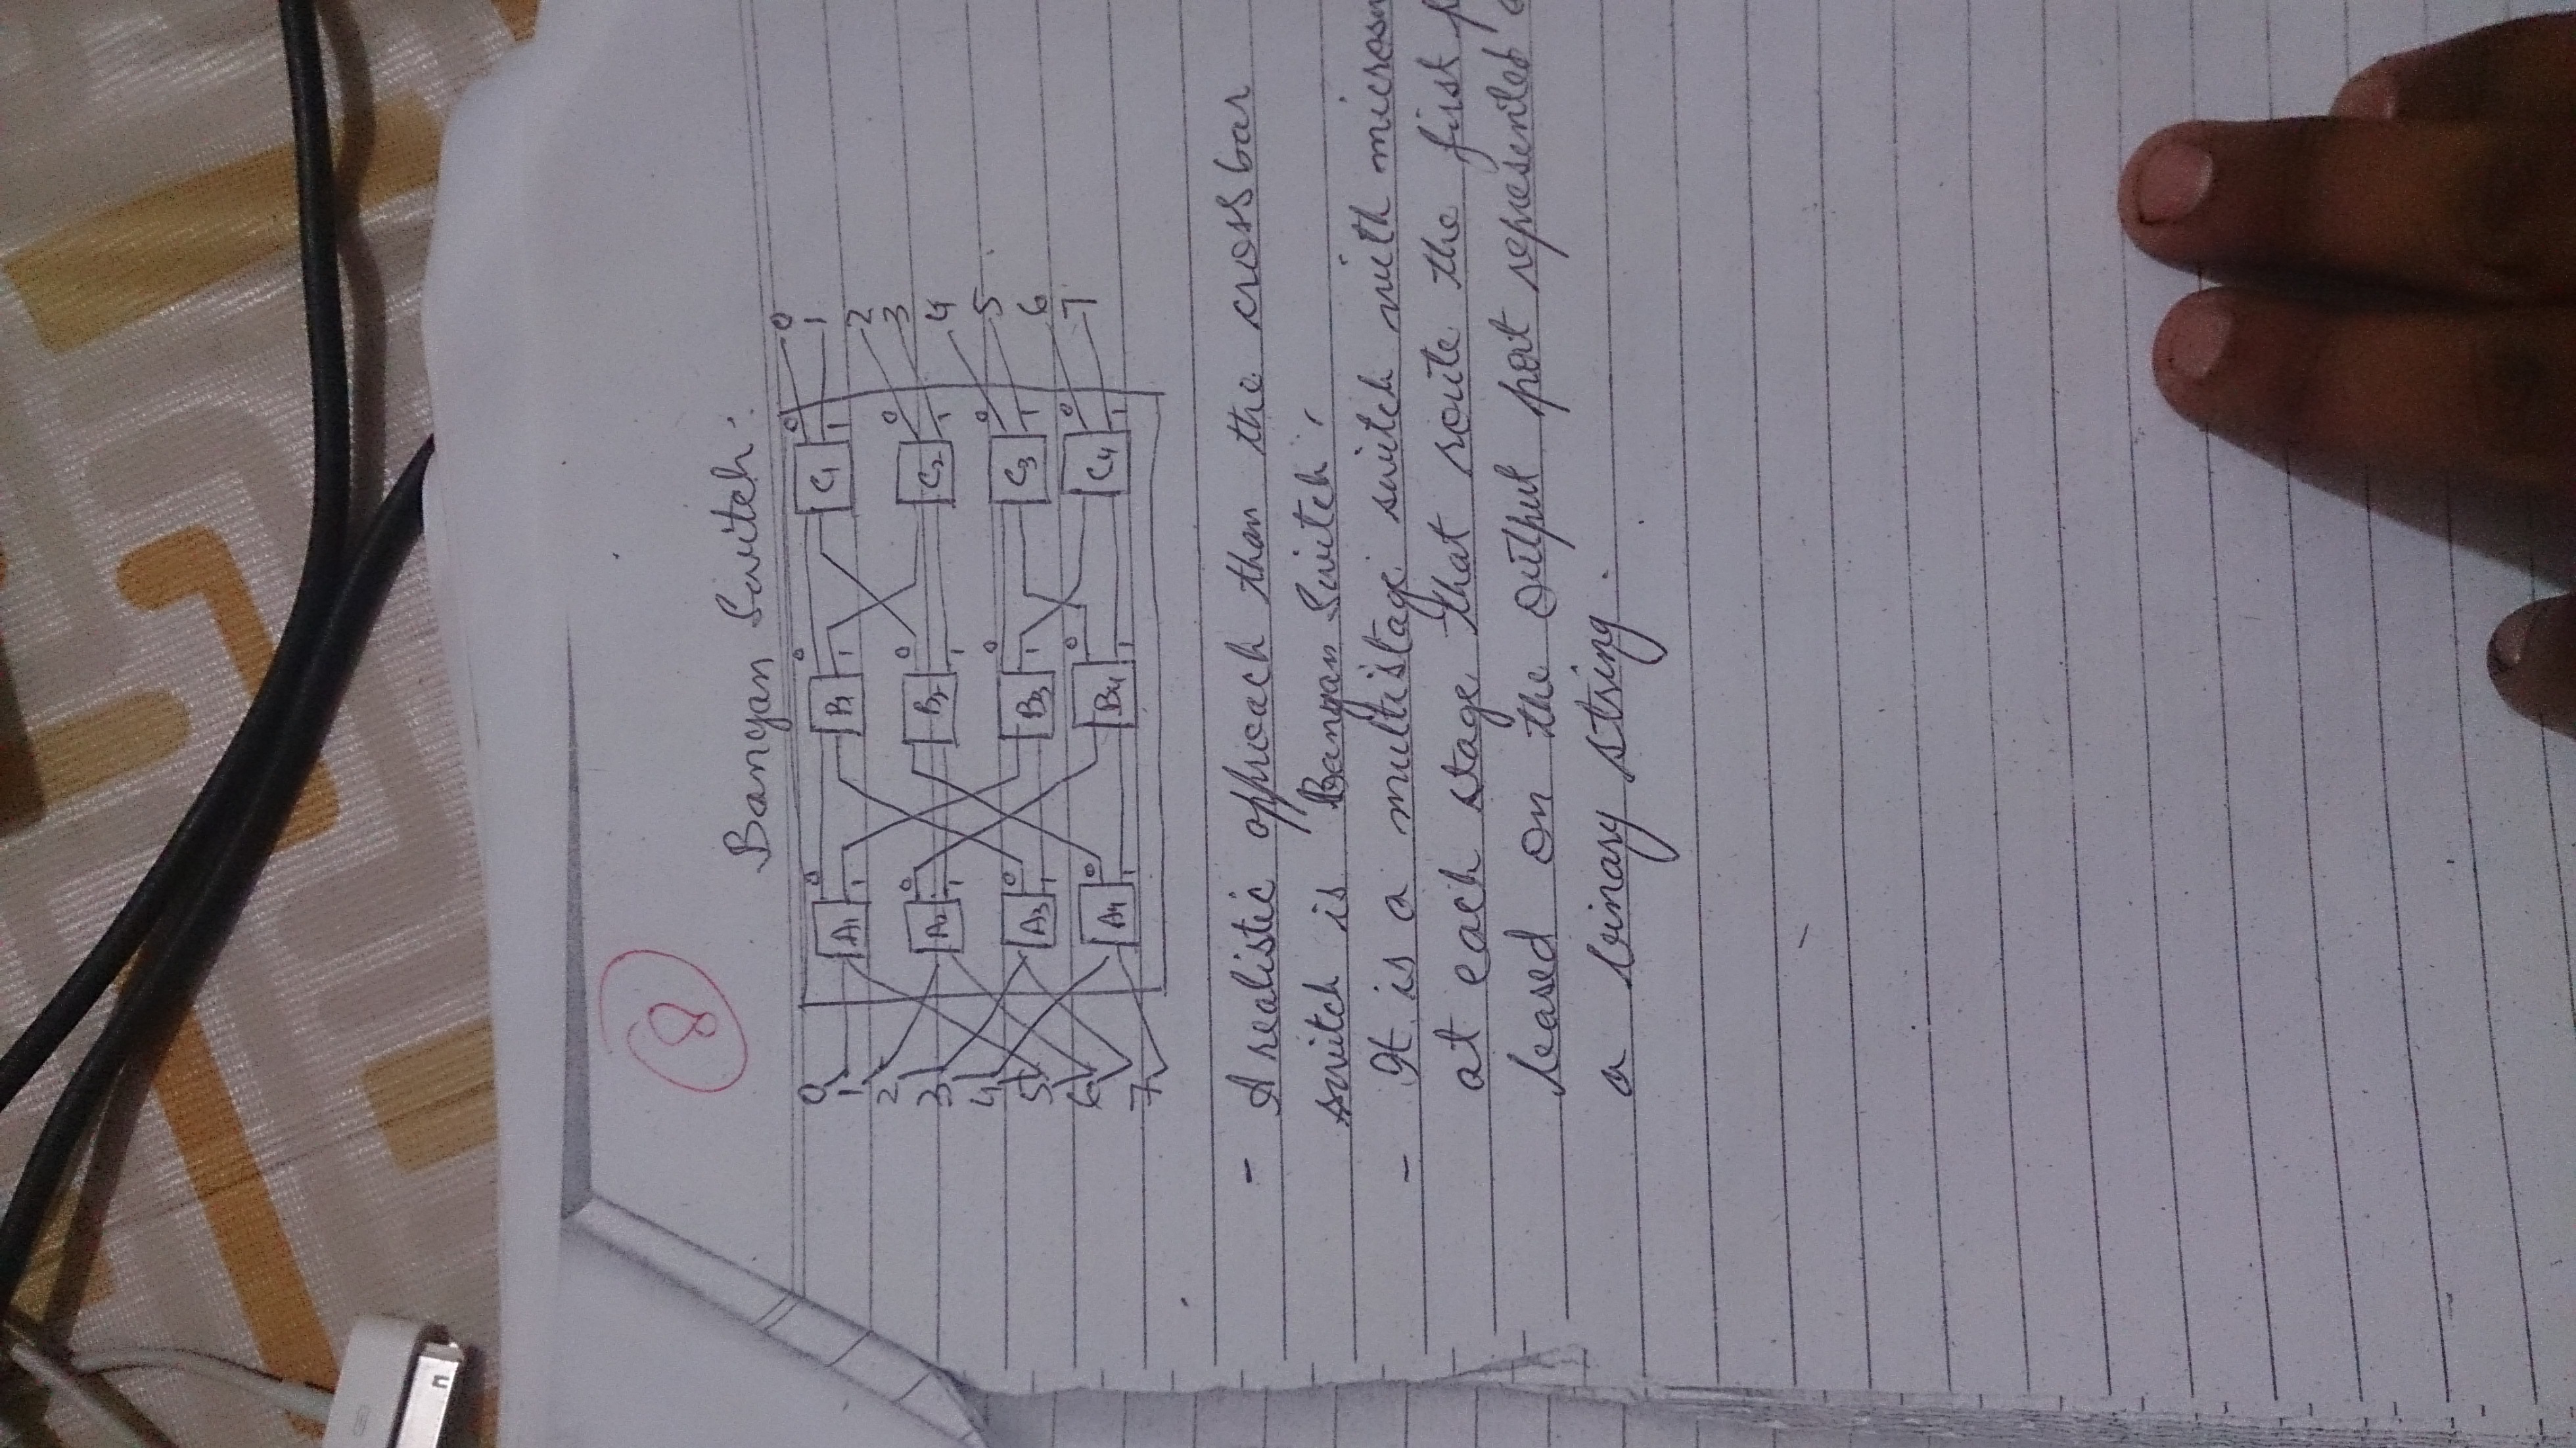 8
Bangan Switch:
0 A1 0 1 B1 0 1 C1 0 1 0
1 1
2 A2 0 1 B2 0 1 C2 0 1 2
3 3
4 A3 0 1 B3 0 1 C3 0 1 4
5 5
6 A4 0 1 B4 0 1 C4 0 1 6
7 7
- A realistic approach than the crossbar
switch is Bangan Switch.
- It is a multistage switch with
at each stage that route the first
based on the output port represented
a binary string.